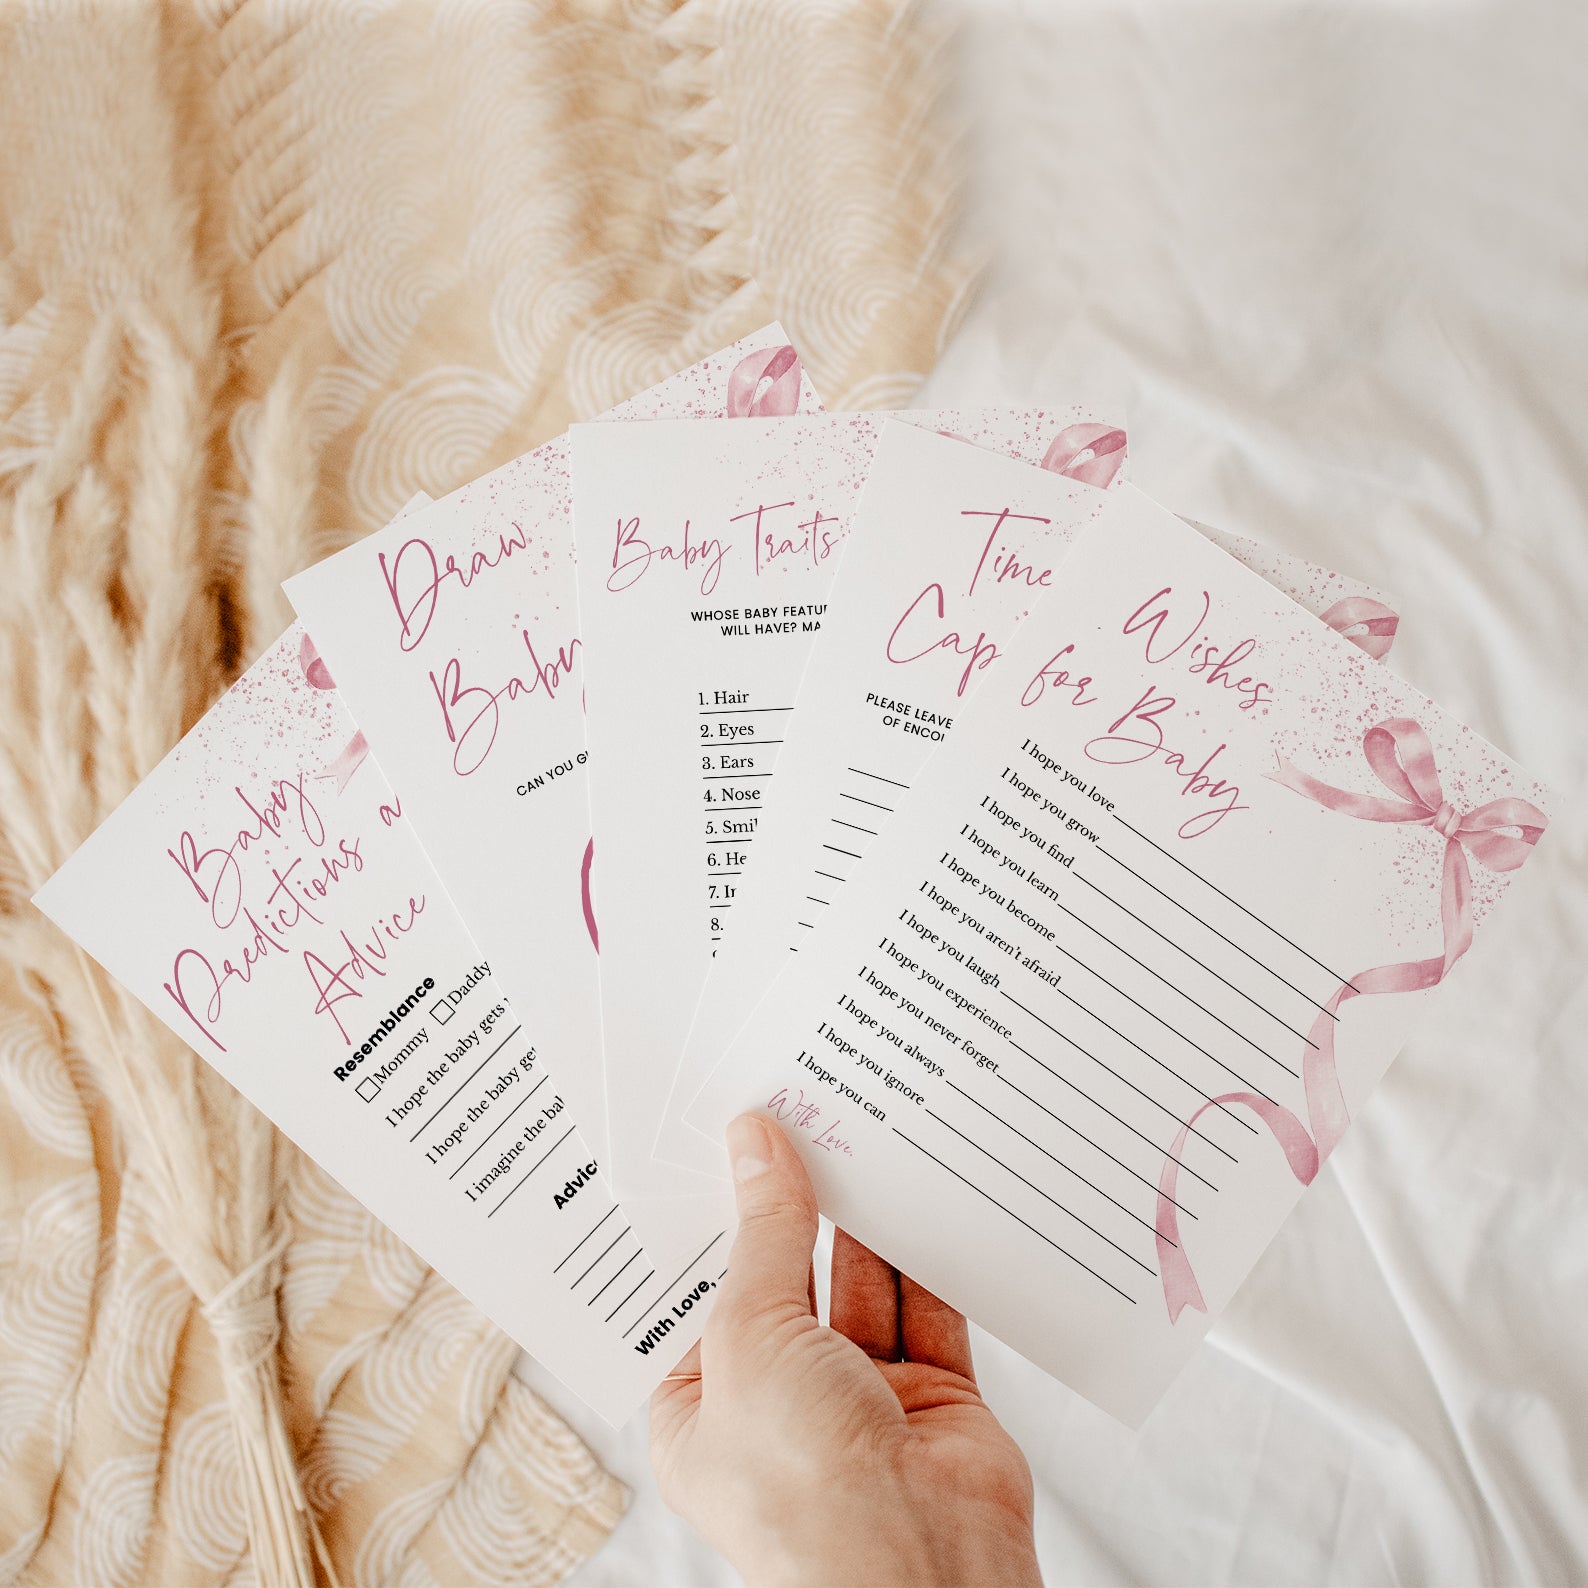 Baby
Predictions a
Advice
Resemblance
Mommy Daddy
I hope the baby gets
I hope the baby
I imagine the
With Love,
Draw
Baby
CAN YOU
Baby Traits
WHOSE BABY
WILL HAVE?
1. Hair
2. Eyes
3. Ears
4. Nose
5.
6.
7.
8.
Time
Cap
PLEASE LEAVE
OF
Wishes
for Baby
I hope you love
I hope you grow
I hope you find
I hope you learn
I hope you become
I hope you aren't afraid
I hope you laugh
I hope you experience
I hope you never forget
I hope you always
I hope you ignore
I hope you can
With Love,